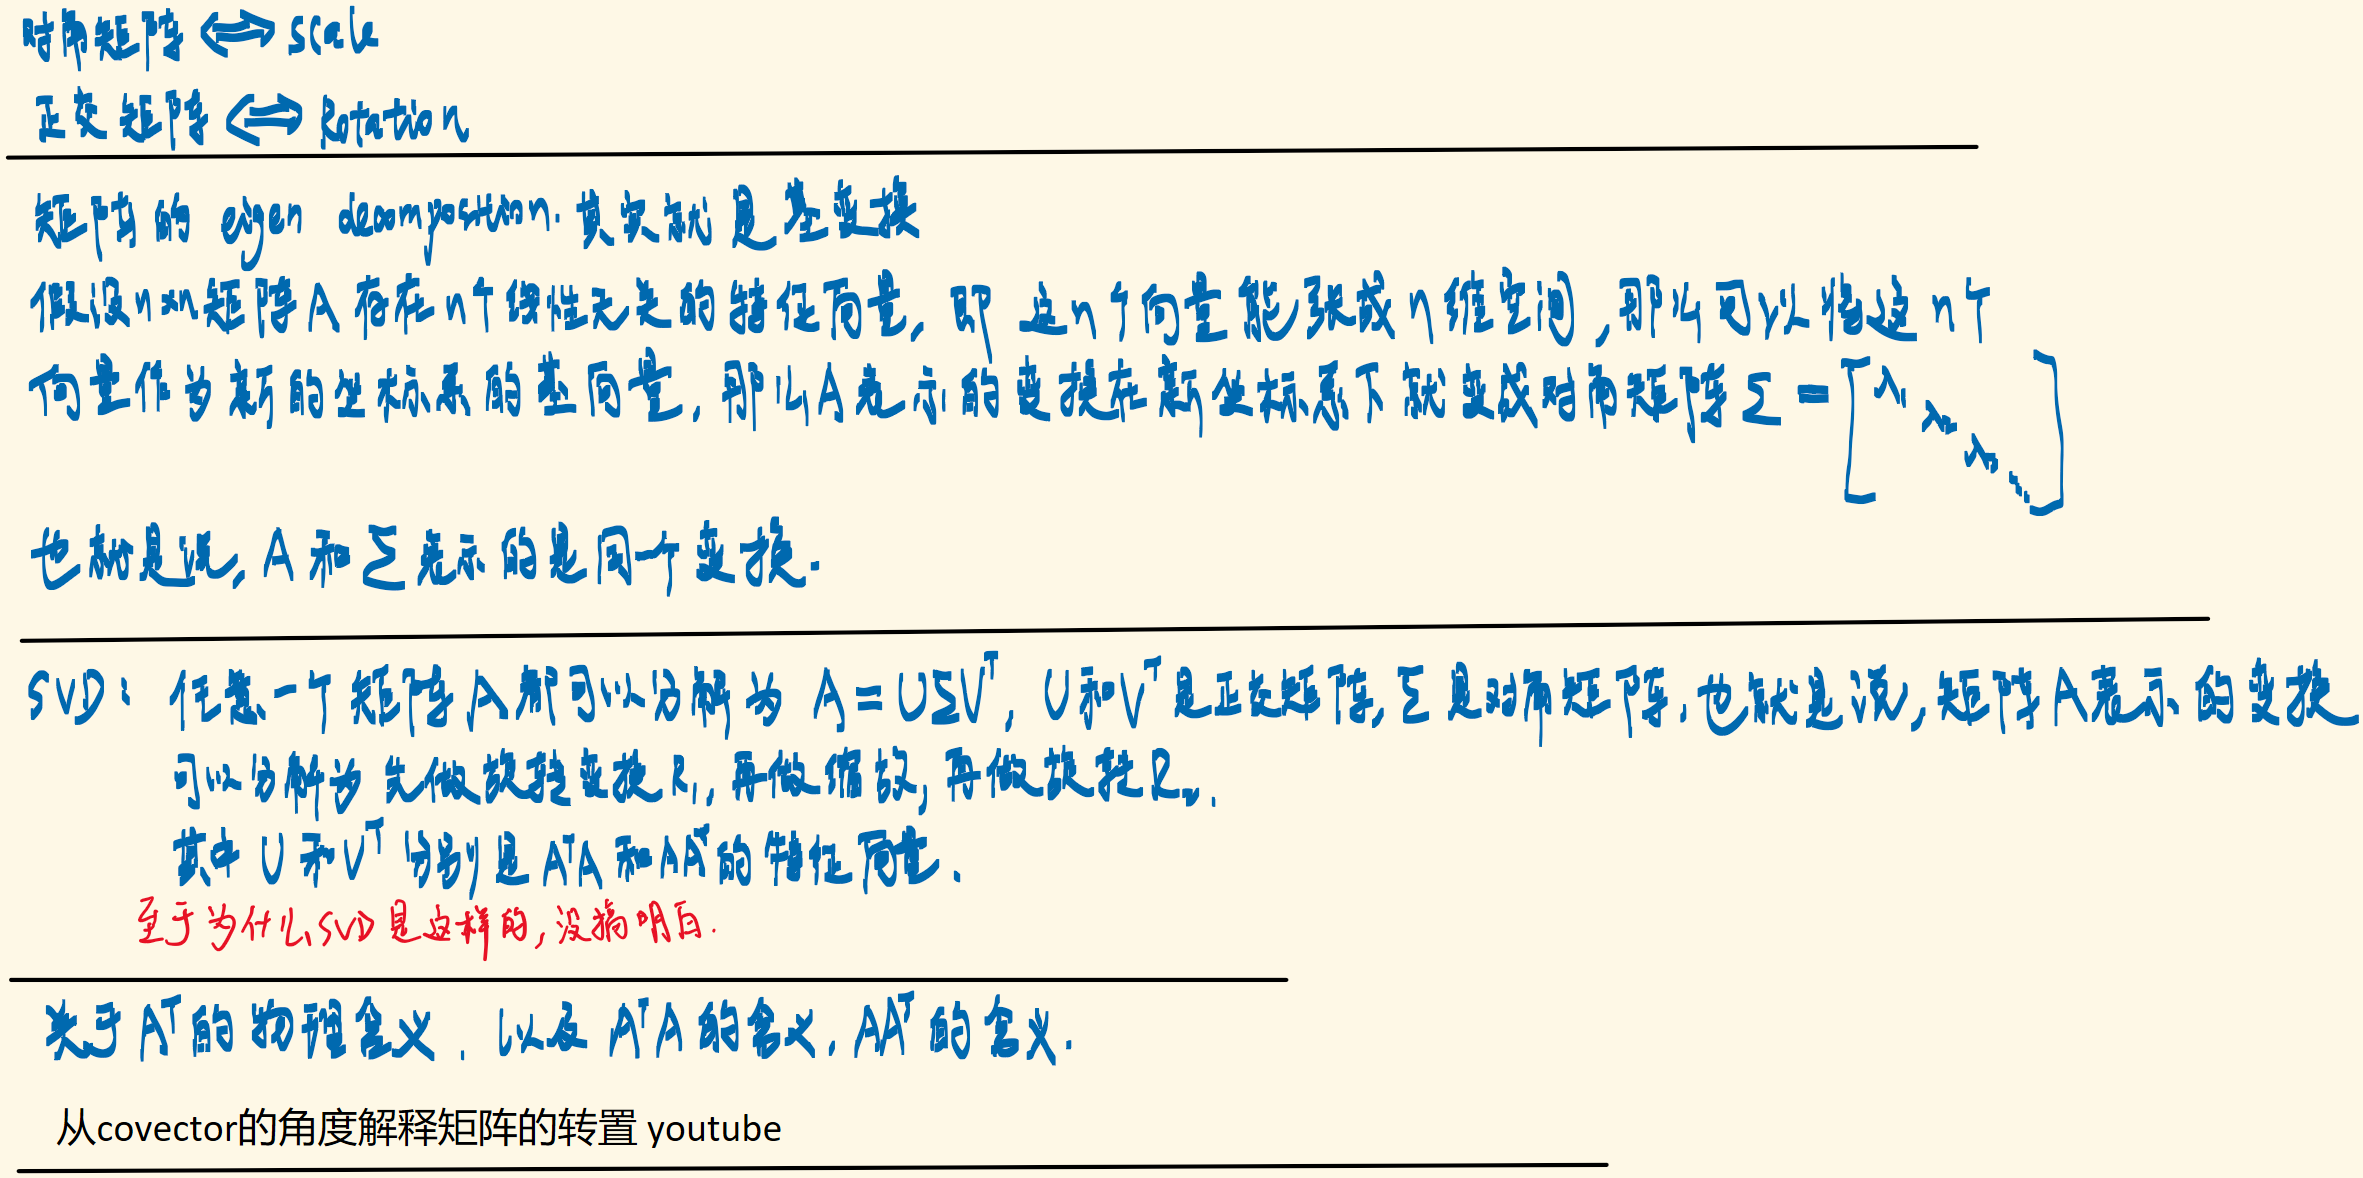 对角矩阵 ⟺ scale
正交矩阵 ⟺ Rotation
矩阵的 eigen decomposition. 其实就是基变换
假设n×n矩阵A存在n个线性无关的特征向量, 即 这n个向量能张成n维空间, 那么可以将这n个
向量作为新的坐标系的基向量, 那么A表示的变换在新坐标系下就变成对角矩阵 Σ = [λ₁ λ₂ λ₃ ⋱]
也就是说, A 和 Σ 表示的是同一个变换.
SVD: 任意一个矩阵A都可以分解为 A = UΣVᵀ, U和Vᵀ是正交矩阵, Σ是对角矩阵. 也就是说, 矩阵A表示的变换
可以分解为 先做旋转变换R₁, 再做缩放, 再做旋转R₂.
其中 U 和 Vᵀ 分别是 AᵀA 和 AAᵀ的特征向量.
至于为什么SVD是这样的, 没搞明白.
关于 Aᵀ的物理含义. 以及 AᵀA 的含义. AAᵀ 的含义.
从covector的角度解释矩阵的转置 youtube